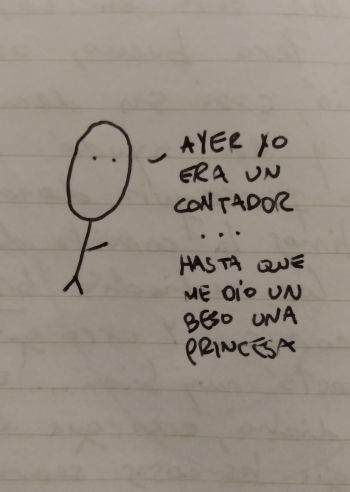 AYER YO
ERA UN
CONTADOR
...
HASTA QUE
ME DIO UN
BESO UNA
PRINCESA